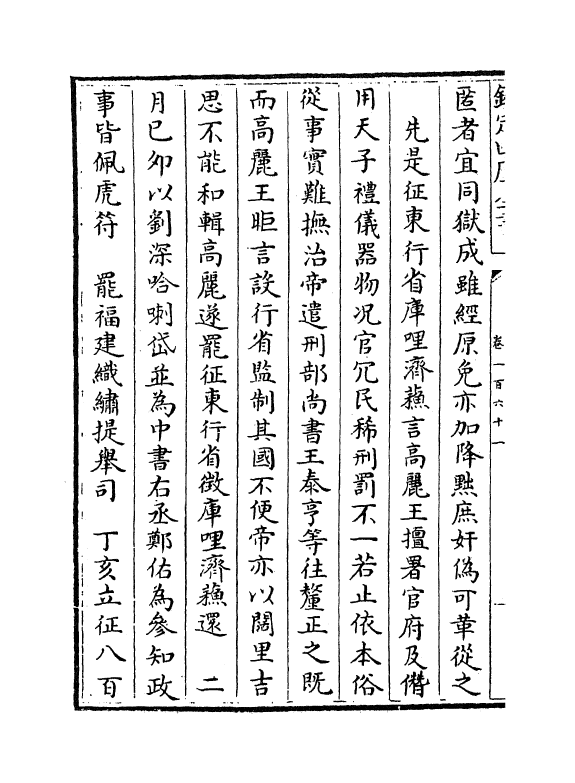 卷一百六十一
匿者宜同獄成雖經原免亦加降黜庶奸偽可革從之
先是征東行省庫哩濟蘓言高麗王擅署官府及僣
用天子禮儀器物况官冗民稀刑罰不一若止依本俗
從事實難撫治帝遣刑部尚書王泰亨等往釐正之既
而高麗王昛言設行省監制其國不便帝亦以闊里吉
思不能和輯高麗遂罷征東行省徴庫哩濟蘓還　二
月已夘以劉深哈喇岱並為中書右丞鄭佑為參知政
事皆佩虎符　罷福建織繡提舉司　丁亥立征八百